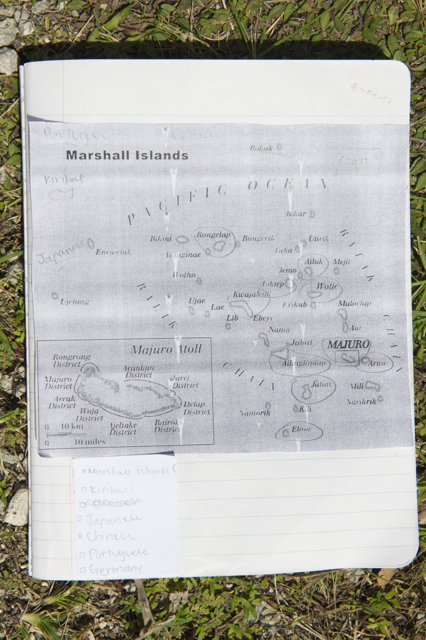 Marshall Islands
Kiribati
PACIFIC OCEAN
Bokak
Bikar
Bikini
Rongelap
Rongerik
Utirik
Taka
Enewetak
Ailinginae
Japanese
Ailuk
Mejit
Jemo
Wotho
Likiep
Wotje
Ujelang
Kwajalein
Erikub
Maloelap
Ujae
Lae
Lib
Ebeye
Aur
Namu
Jabat
MAJURO
Ailinglaplap
Arno
RALIK
CHAIN
RATAK
CHAIN
Jaluit
Mili
Narikrik
Namorik
Kili
Ebon
Majuro Atoll
Rongrong District
Ajunkan District
Majuro District
Jarej District
Arrak District
Delap District
Woja District
Ajeltake District
Rairok District
0 10 km
0 10 miles
Marshall islands
Kiribati
Japanese
Chinese
Portuguese
Germany